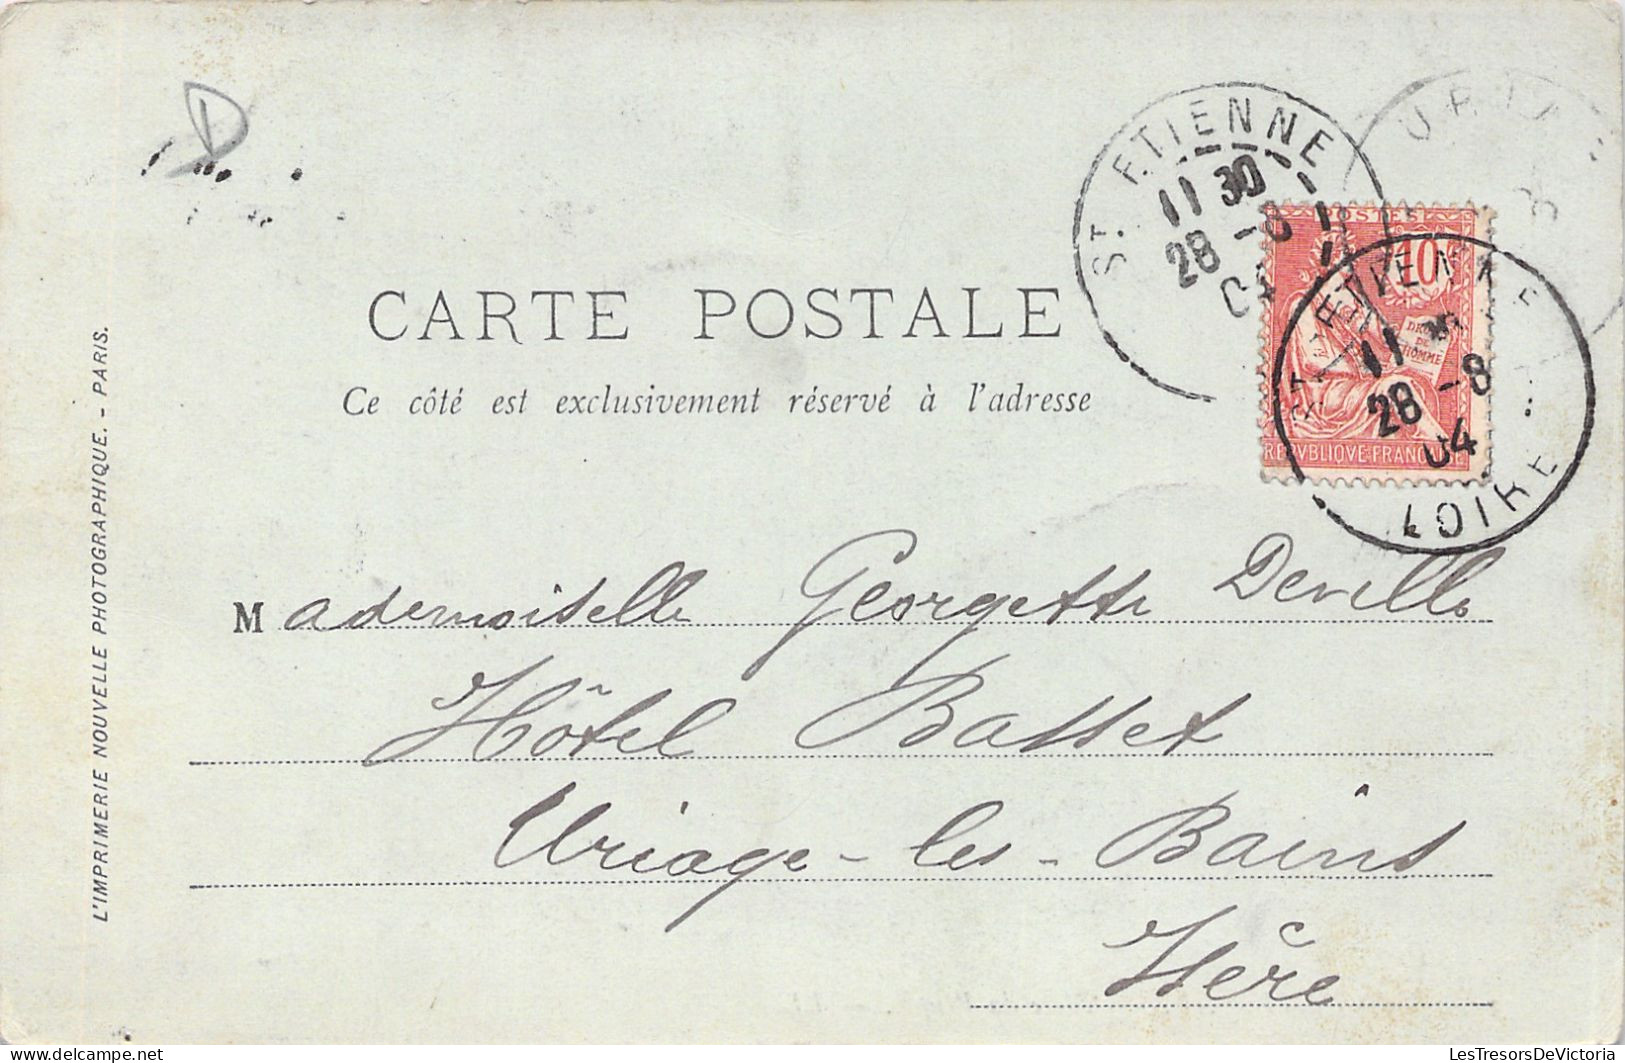 D
ST ETIENNE
11 30
28 -8
04
URIAGE
POSTES
10
DROITS
DE
L'HOMME
REPVBLIQVE FRANÇAISE
ST ETIENNE
11 30
28 -8
04
LOIRE
CARTE POSTALE
Ce côté est exclusivement réservé à l'adresse
L'IMPRIMERIE NOUVELLE PHOTOGRAPHIQUE. - PARIS.
Mademoiselle Georgette Deville
Hôtel Basset
Uriage-les-Bains
Isère
LesTresorsDeVictoria